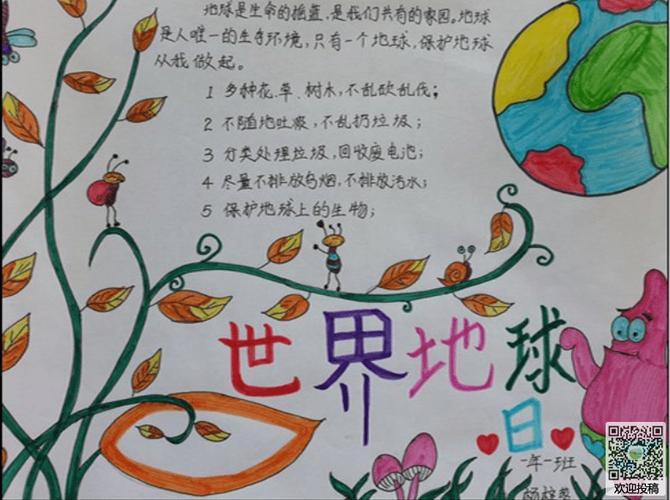 地球是生命的摇蓝,是我们共有的家园。地球
是人唯一的生存环境,只有一个地球,保护地球
从我做起。
1 多种花、草、树木,不乱砍乱伐;
2 不随地吐痰,不乱扔垃圾;
3 分类处理垃圾,回收废电池;
4 尽量不排放乌烟,不排放污水;
5 保护地球上的生物;
世界地球
日
一年一班
欢迎投稿